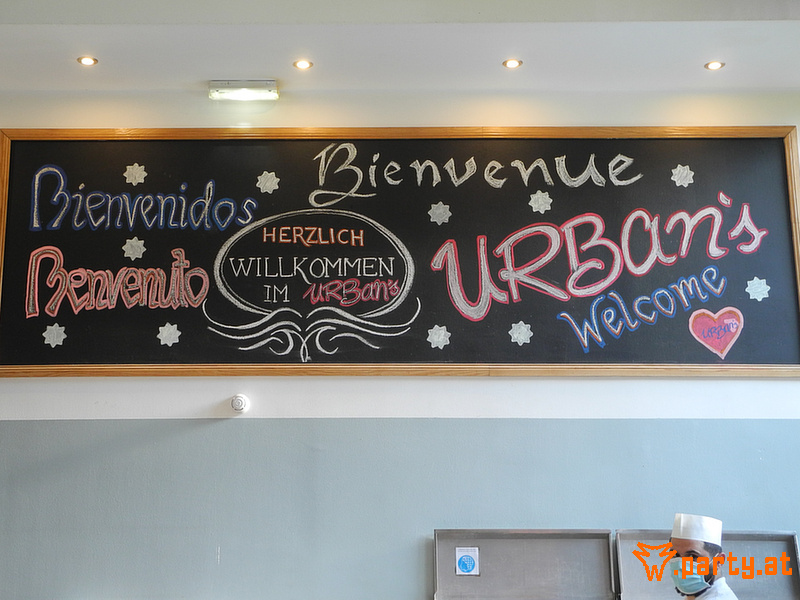 Bienvenue
Bienvenidos
Benvenuto
HERZLICH
WILLKOMMEN
IM URBAN's
URBAN's
Welcome
URBAN's
w.party.at